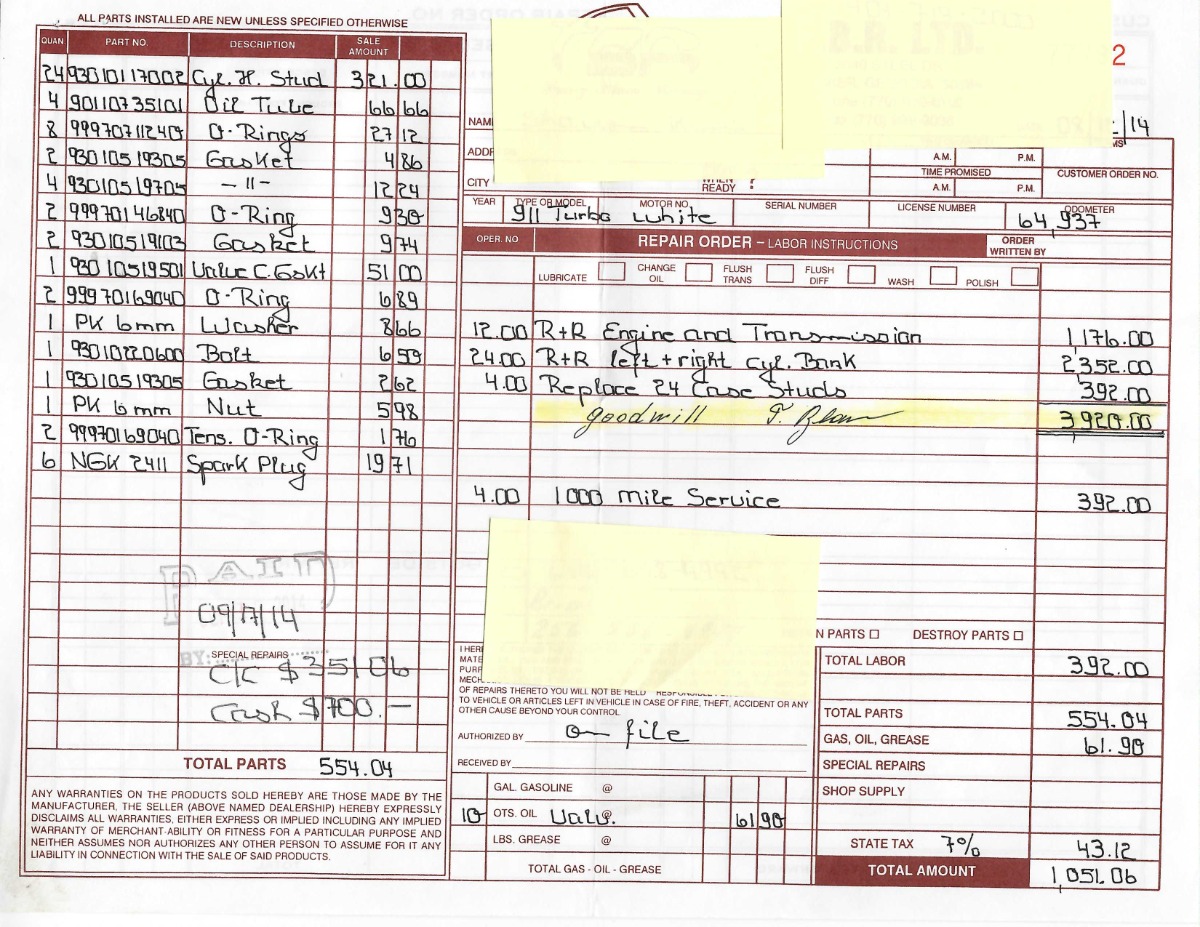 ALL PARTS INSTALLED ARE NEW UNLESS SPECIFIED OTHERWISE
QUAN PART NO. DESCRIPTION SALE AMOUNT
24 93010117002 Cyl. H. Stud 321.00
4 90110735101 Oil Tube 66 66
8 999707112409 O-Rings 27 12
2 93010519305 Gasket 4 86
4 93010519705 -"- 12 24
2 99970146840 O-Ring 9 30
2 93010519103 Gasket 9 74
1 93010519501 Valve C. Gskt 51 00
2 99970169040 O-Ring 6 89
1 PK 6mm Washer 8 66
1 93010220600 Bolt 6 50
1 93010519305 Gasket 2 62
1 PK 6mm Nut 5 98
2 99970169040 Tens. O-Ring 1 76
6 NGK 2411 Spark Plug 19 71
PAID
09/17/14
BY:
SPECIAL REPAIRS
C/C $351.06
Cash $700.—
TOTAL PARTS 554.04
ANY WARRANTIES ON THE PRODUCTS SOLD HEREBY ARE THOSE MADE BY THE
MANUFACTURER. THE SELLER (ABOVE NAMED DEALERSHIP) HEREBY EXPRESSLY
DISCLAIMS ALL WARRANTIES, EITHER EXPRESS OR IMPLIED INCLUDING ANY IMPLIED
WARRANTY OF MERCHANT-ABILITY OR FITNESS FOR A PARTICULAR PURPOSE AND
NEITHER ASSUMES NOR AUTHORIZES ANY OTHER PERSON TO ASSUME FOR IT ANY
LIABILITY IN CONNECTION WITH THE SALE OF SAID PRODUCTS.
2
/14
NAM
ADDR
CITY
WHEN READY ?
A.M. P.M.
TIME PROMISED
A.M. P.M.
CUSTOMER ORDER NO.
YEAR TYPE OR MODEL MOTOR NO. SERIAL NUMBER LICENSE NUMBER ODOMETER
911 Turbo White 64,937
OPER. NO REPAIR ORDER – LABOR INSTRUCTIONS ORDER WRITTEN BY
LUBRICATE CHANGE OIL FLUSH TRANS FLUSH DIFF WASH POLISH
12.00 R+R Engine and Transmission 1,176.00
24.00 R+R left + right Cyl. Bank 2,352.00
4.00 Replace 24 Case Studs 392.00
goodwill 3,920.00
4.00 1000 mile Service 392.00
N PARTS DESTROY PARTS
I HERE
MATE
PURP
MECH
OF REPAIRS THERETO YOU WILL NOT BE HELD RESPONSIBLE
TO VEHICLE OR ARTICLES LEFT IN VEHICLE IN CASE OF FIRE, THEFT, ACCIDENT OR ANY
OTHER CAUSE BEYOND YOUR CONTROL
AUTHORIZED BY on file
RECEIVED BY
GAL. GASOLINE @
10 QTS. OIL Valv. @ 61 90
LBS. GREASE @
TOTAL GAS - OIL - GREASE
TOTAL LABOR 392.00
TOTAL PARTS 554.04
GAS, OIL, GREASE 61.90
SPECIAL REPAIRS
SHOP SUPPLY
STATE TAX 7% 43.12
TOTAL AMOUNT 1,051.06